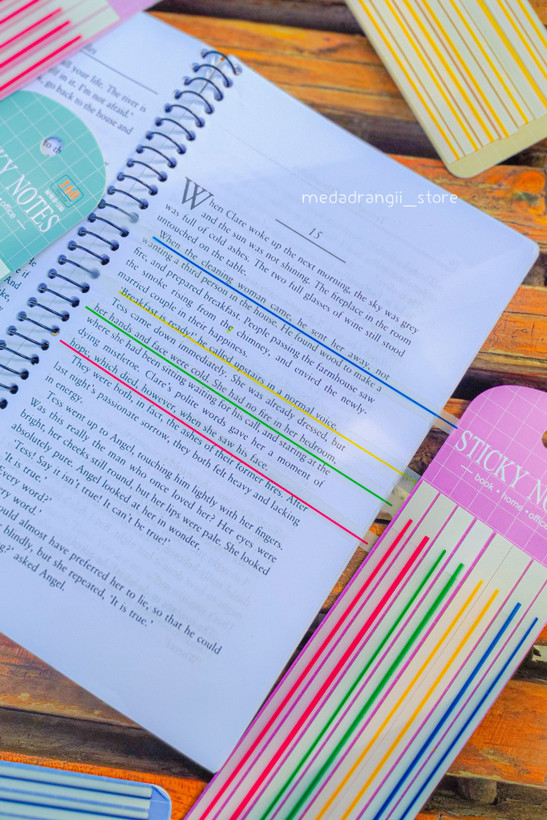 all your life. The river is
in it. I'm not afraid.'
go back to the house and
to th
KY NOTES
office
360
medadrangii__store
15
When Clare woke up the next morning, the sky was grey
and the sun was not shining. The fireplace in the room
was full of cold ashes. The two full glasses of wine still stood
untouched on the table.
When the cleaning woman came, he sent her away, not
wanting a third person in the house. He found wood to make a
fire, and prepared breakfast. People passing the farmhouse saw
the smoke rising from the chimney, and envied the newly-
married couple on their happiness.
'Breakfast is ready!' he called upstairs in a normal voice.
Tess came down immediately. She was already dressed, but
her hands and face were cold. She had no fire in her bedroom,
where she had been sitting waiting for his call and staring at the
dying mistletoe. Clare's polite words gave her a moment of
hope, which died, however, when she saw his face.
They were both, in fact, the ashes of their former fires. After
last night's passionate sorrow, they both felt heavy and lacking
in energy.
Tess went up to Angel, touching him lightly with her fingers.
Was this really the man who once loved her? Her eyes were
bright, her cheeks still round, but her lips were pale. She looked
absolutely pure. Angel looked at her in wonder.
'Tess! Say it isn't true! It can't be true!'
'It is true.'
'Every word?'
'Every word.'
would almost have preferred her to lie, so that he could
blindly, but she repeated, 'It is true.'
asked Angel.
STICKY NO
book • home • office